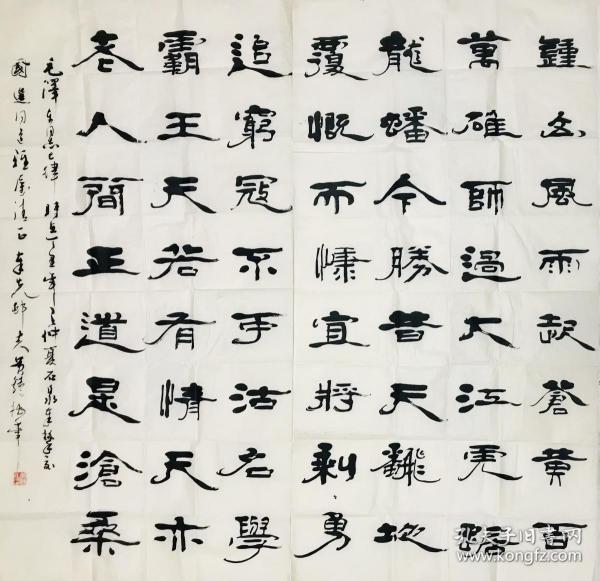 鍾山風雨起蒼黄百
萬雄師過大江虎踞
龍蟠今勝昔天翻地
覆慨而慷宜將剩勇
追窮寇不可沽名學
霸王天若有情天亦
老人間正道是滄桑
毛澤東 七律 時在丁亥年之仲夏石泉
國進同道雅屬清正
孔夫子旧书网
www.kongfz.com